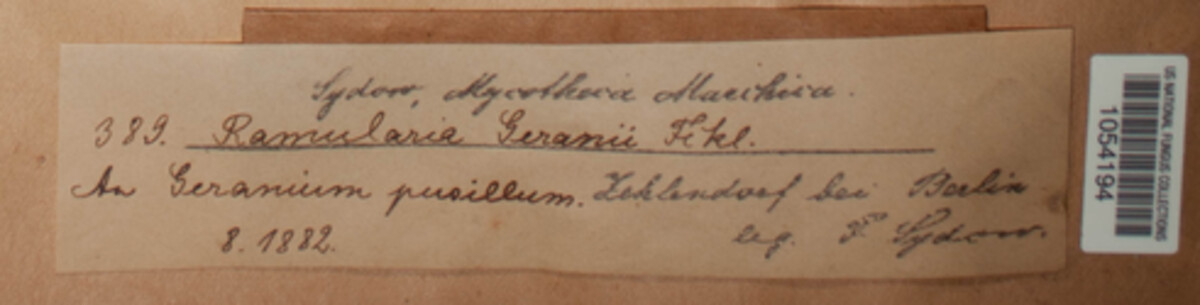 Sydow, Mycotheca Marchica.
389. Ramularia Geranii Fckl.
An Geranium pusillum. Zehlendorf bei Berlin
8. 1882. leg. P. Sydow.
US NATIONAL FUNGUS COLLECTIONS
1054194